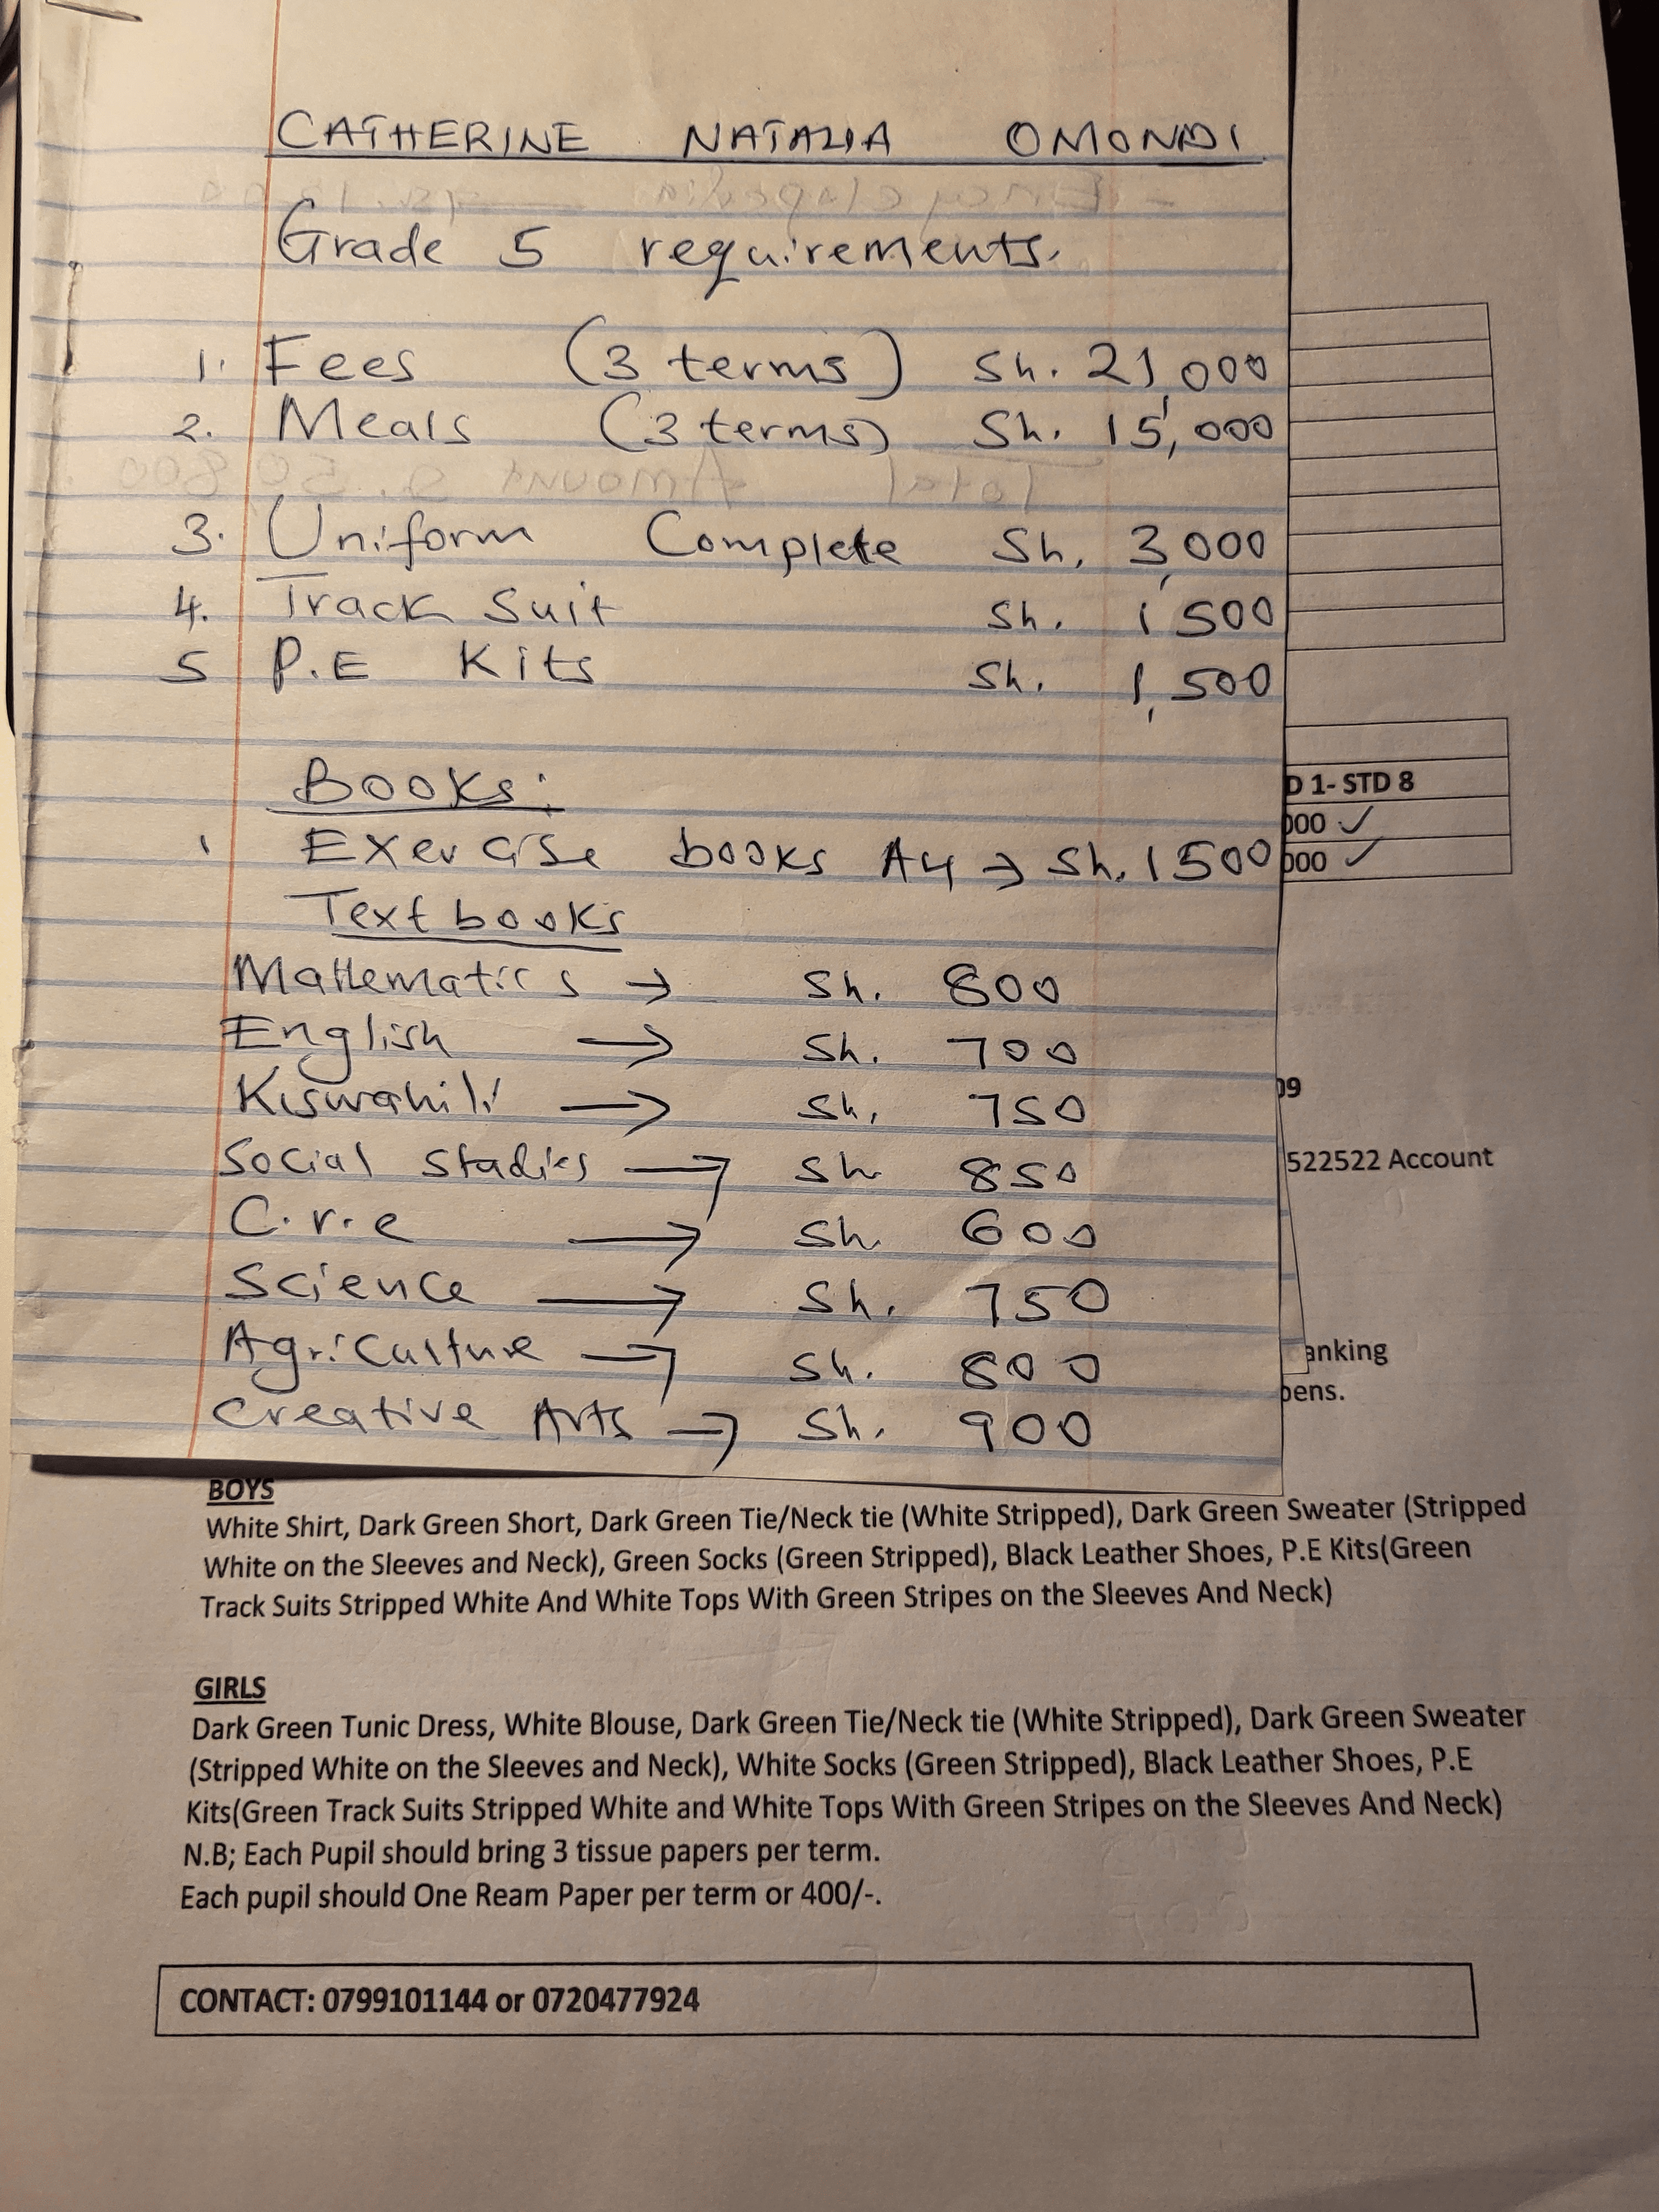 CATHERINE NATALIA OMONDI
Grade 5 requirements.
1. Fees (3 terms) Sh. 21,000
2. Meals (3 terms) Sh. 15,000
3. Uniform Complete Sh. 3,000
4. Track Suit Sh. 1 500
5 P.E Kits Sh. 1,500
Books:
1 Exercise books A4 → Sh. 1500
Text books
Mathematics → Sh. 800
English → Sh. 700
Kiswahili → Sh. 750
Social studies → Sh 850
C.r.e → Sh. 600
Science → Sh. 750
Agriculture → Sh. 800
Creative Arts → Sh. 900
D 1- STD 8
000 ✓
000 ✓
09
522522 Account
anking
pens.
BOYS
White Shirt, Dark Green Short, Dark Green Tie/Neck tie (White Stripped), Dark Green Sweater (Stripped
White on the Sleeves and Neck), Green Socks (Green Stripped), Black Leather Shoes, P.E Kits(Green
Track Suits Stripped White And White Tops With Green Stripes on the Sleeves And Neck)
GIRLS
Dark Green Tunic Dress, White Blouse, Dark Green Tie/Neck tie (White Stripped), Dark Green Sweater
(Stripped White on the Sleeves and Neck), White Socks (Green Stripped), Black Leather Shoes, P.E
Kits(Green Track Suits Stripped White and White Tops With Green Stripes on the Sleeves And Neck)
N.B; Each Pupil should bring 3 tissue papers per term.
Each pupil should One Ream Paper per term or 400/-.
CONTACT: 0799101144 or 0720477924